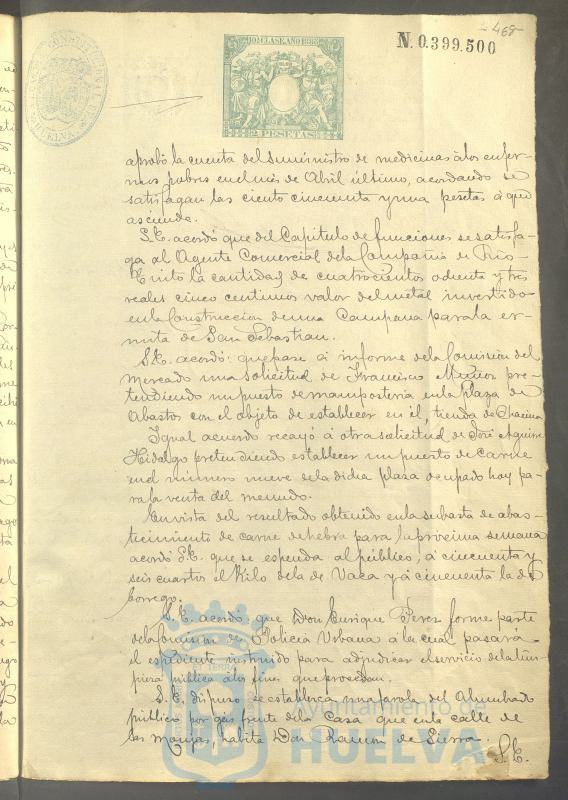 468
N. 0.399.500
10ª CLASE. AÑO 1883
2 PESETAS
HUELVA
aprobó la cuenta del suministro de medicinas á los enfer-
mos pobres en el mes de Abril último, acordando se
satisfagan las ciento cincuenta y una pesetas á que
asciende.
S.E. acordó que del Capitulo de funciones se satisfa-
ga al Agente Comercial de la Compañia de Rio-
Tinto la cantidad de cuatrocientos ochenta y tres
reales cinco centimos valor del metal invertido
en la Construccion de una Campana para la er-
mita de San Sebastian.
S.E. acordó: que pase á informe de la Comision del
Mercado una solicitud de Francisco Muñoz pre-
tendiendo un puesto de mamposteria en la plaza de
Abastos con el objeto de establecer en él, tienda de Chacina
Igual acuerdo recayó á otra solicitud de José Aguirre
Hidalgo pretendiendo establecer un puesto de carne
en el número nueve de la dicha plaza ocupado hoy pa-
ra la venta del menudo.
En vista del resultado obtenido en la subasta de abas-
tecimiento de carne de hebra para la procsima semana
acordó S.E. que se espenda al público, á cincuenta y
seis cuartos el Kilo de la de Vaca y á cincuenta la de
borrego.
S.E. acordó: que Don Enrique Perez forme parte
de la Comision de Policia Urbana á la cual pasará
el espediente instruido para adjudicar el servicio de la lim-
pieza pública á los fines que procedan.
S.E. dispuso se establezca una farola del Alumbrado
público por gas frente de la Casa que en la calle de
las Monjas, habita Don Ramon de Sierra.
S.E.
Ayuntamiento de
HUELVA